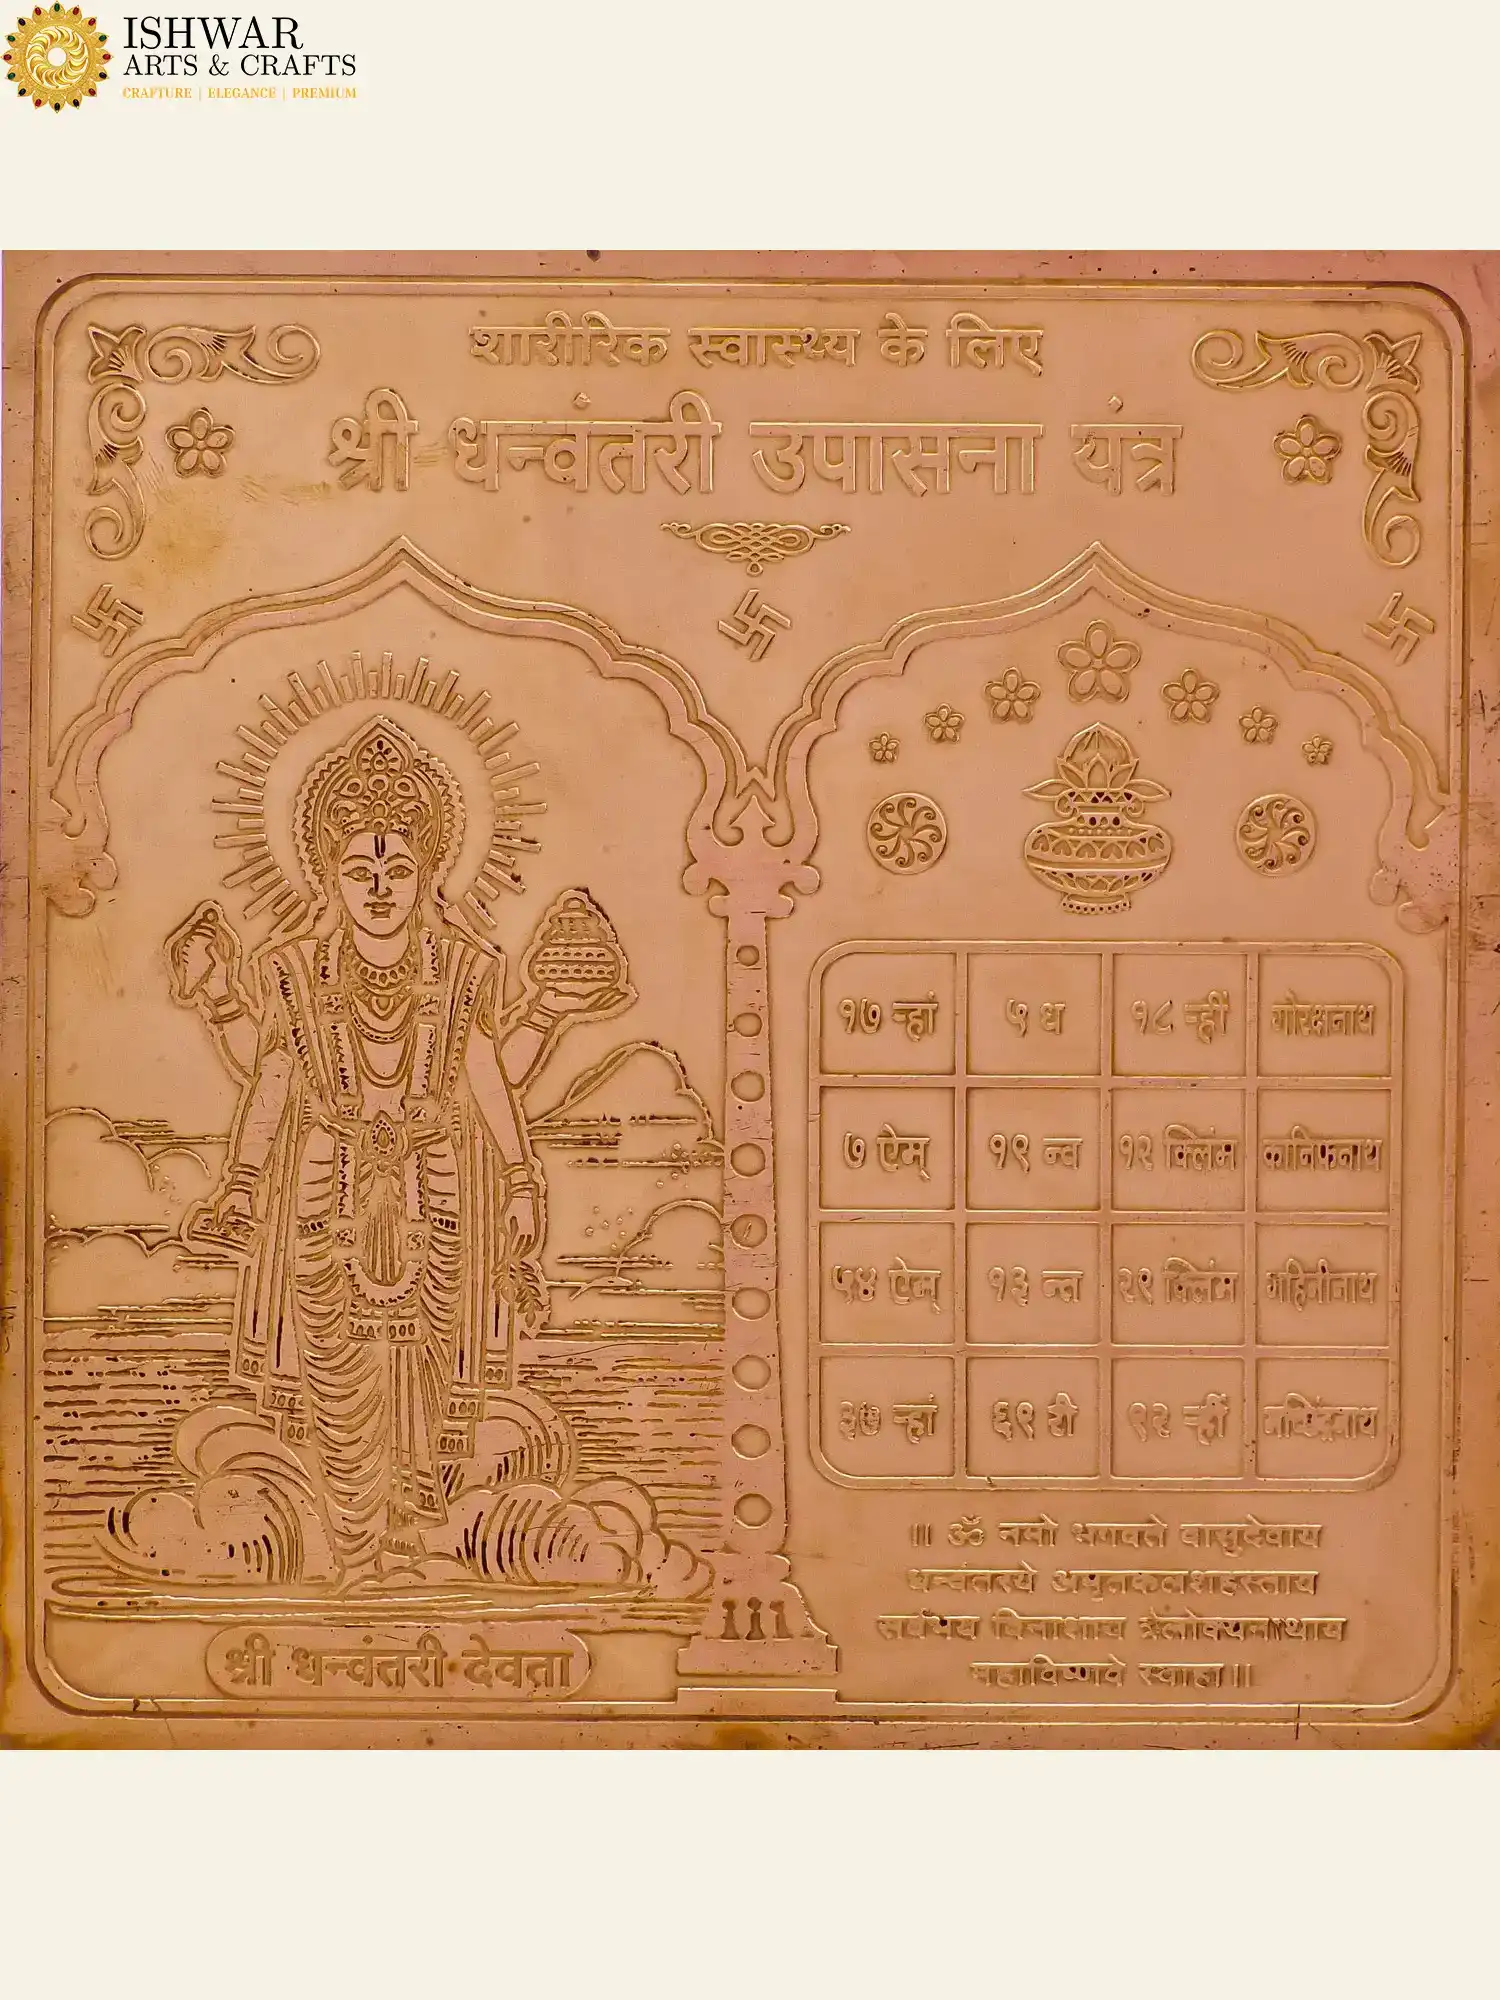 ISHWAR
ARTS & CRAFTS
CRAFTURE | ELEGANCE | PREMIUM
शारीरिक स्वास्थ्य के लिए
श्री धन्वंतरी उपासना यंत्र
१७ ऱ्हां ५ ध १८ ऱ्हीं गोरक्षनाथ
७ ऐम् १९ न्व १२ क्लिंम कानिफनाथ
५४ ऐम् १३ न्त २९ क्लिंम गहिनीनाथ
ऱ्हां ६९ री ९२ ऱ्हीं मच्छिंद्रनाथ
॥ ॐ नमो भगवते वासुदेवाय
धन्वंतरये अमृतकलशहस्ताय
सर्वभय विनाशाय त्रैलोक्यनाथाय
महाविष्णवे स्वाहा॥
श्री धन्वंतरी देवता